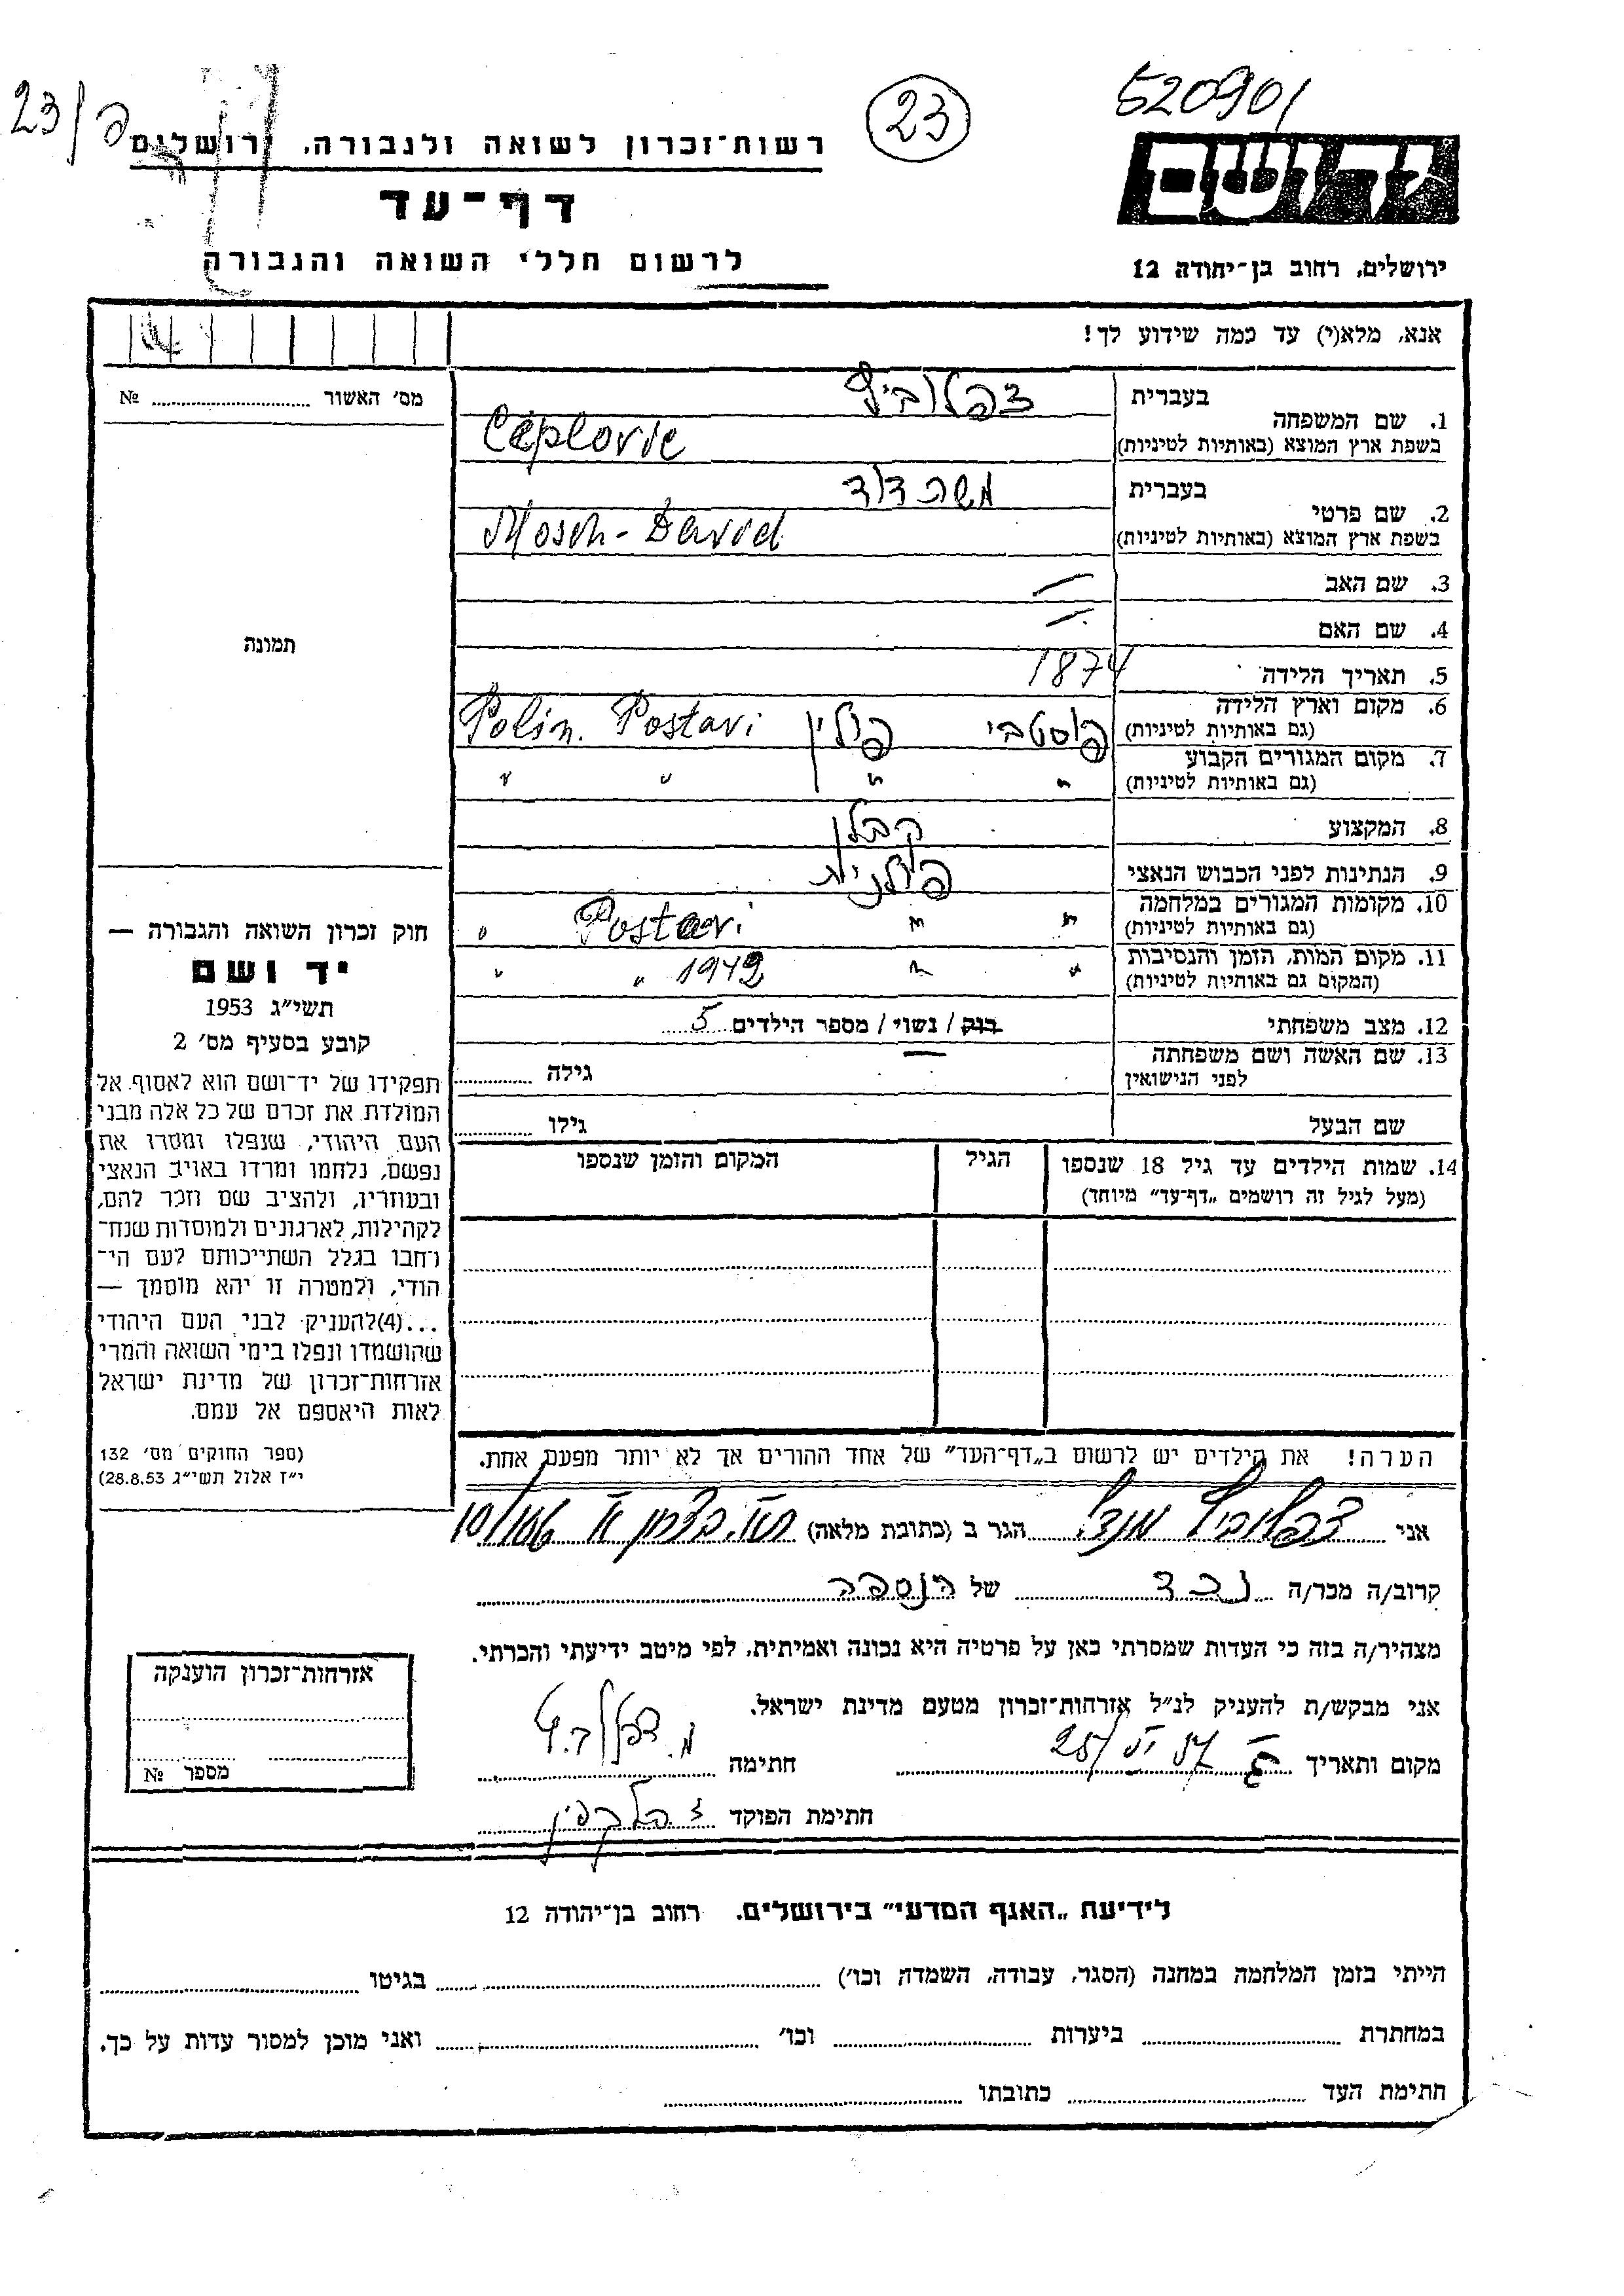 520901
23
23/פ
רשות־זכרון לשואה ולגבורה, ירושלים
דף־עד
לרשום חללי השואה והגבורה
יד ושם
ירושלים, רחוב בן־יהודה 12
אנא, מלא(י) עד כמה שידוע לך!
מס׳ האשור № 
1. שם המשפחה בעברית צפלוביץ
בשפת ארץ המוצא (באותיות לטיניות) Ceplovic
2. שם פרטי בעברית משה דוד
בשפת ארץ המוצא (באותיות לטיניות) Mosch-David
3. שם האב —
4. שם האם —
5. תאריך הלידה 1874
6. מקום וארץ הלידה (גם באותיות לטיניות) פוסטבי פולין Polin. Postavi
7. מקום המגורים הקבוע (גם באותיות לטיניות) " " " "
8. המקצוע קבלן
9. הנתינות לפני הכבוש הנאצי פולנית
10. מקומות המגורים במלחמה (גם באותיות לטיניות) " " Postavi "
11. מקום המות, הזמן והנסיבות (המקום גם באותיות לטיניות) " " 1942 " "
12. מצב משפחתי רוק / נשוי / מספר הילדים 5
13. שם האשה ושם משפחתה לפני הנישואין — גילה
שם הבעל גילו
14. שמות הילדים עד גיל 18 שנספו (מעל לגיל זה רושמים „דף־עד" מיוחד)
הגיל
המקום והזמן שנספו
הערה! את הילדים יש לרשום ב„דף־העד" של אחד ההורים אך לא יותר מפעם אחת.
תמונה
חוק זכרון השואה והגבורה —
יד ושם
תשי״ג 1953
קובע בסעיף מס׳ 2
תפקידו של יד־ושם הוא לאסוף אל
המולדת את זכרם של כל אלה מבני
העם היהודי, שנפלו ומסרו את
נפשם, נלחמו ומרדו באויב הנאצי
ובעוזריו, ולהציב שם וזכר להם,
לקהילות, לארגונים ולמוסדות שנח־
רחבו בגלל השתייכותם לעם הי־
הודי, ולמטרה זו יהא מוסמך —
...(4)להעניק לבני העם היהודי
שהושמדו ונפלו בימי השואה והמרי
אזרחות־זכרון של מדינת ישראל
לאות היאספם אל עמם.
(ספר החוקים מס׳ 132
י״ז אלול תשי״ג 28.8.53)
אני צפלוביץ מנדל הגר ב (כתובת מלאה) 10/166
קרוב/ה מכר/ה נכד של הנספה
מצהיר/ה בזה כי העדות שמסרתי כאן על פרטיה היא נכונה ואמיתית, לפי מיטב ידיעתי והכרתי.
אני מבקש/ת להעניק לנ״ל אזרחות־זכרון מטעם מדינת ישראל.
מקום ותאריך 25/ VI 57 חתימה מ. צפלוביץ
חתימת הפוקד
אזרחות־זכרון הוענקה
מספר №
לידיעת „האגף המדעי" בירושלים, רחוב בן־יהודה 12
הייתי בזמן המלחמה במחנה (הסגר, עבודה, השמדה וכו׳) בגיטו
במחתרת ביערות וכו׳ ואני מוכן למסור עדות על כך.
חתימת העד כתובתו